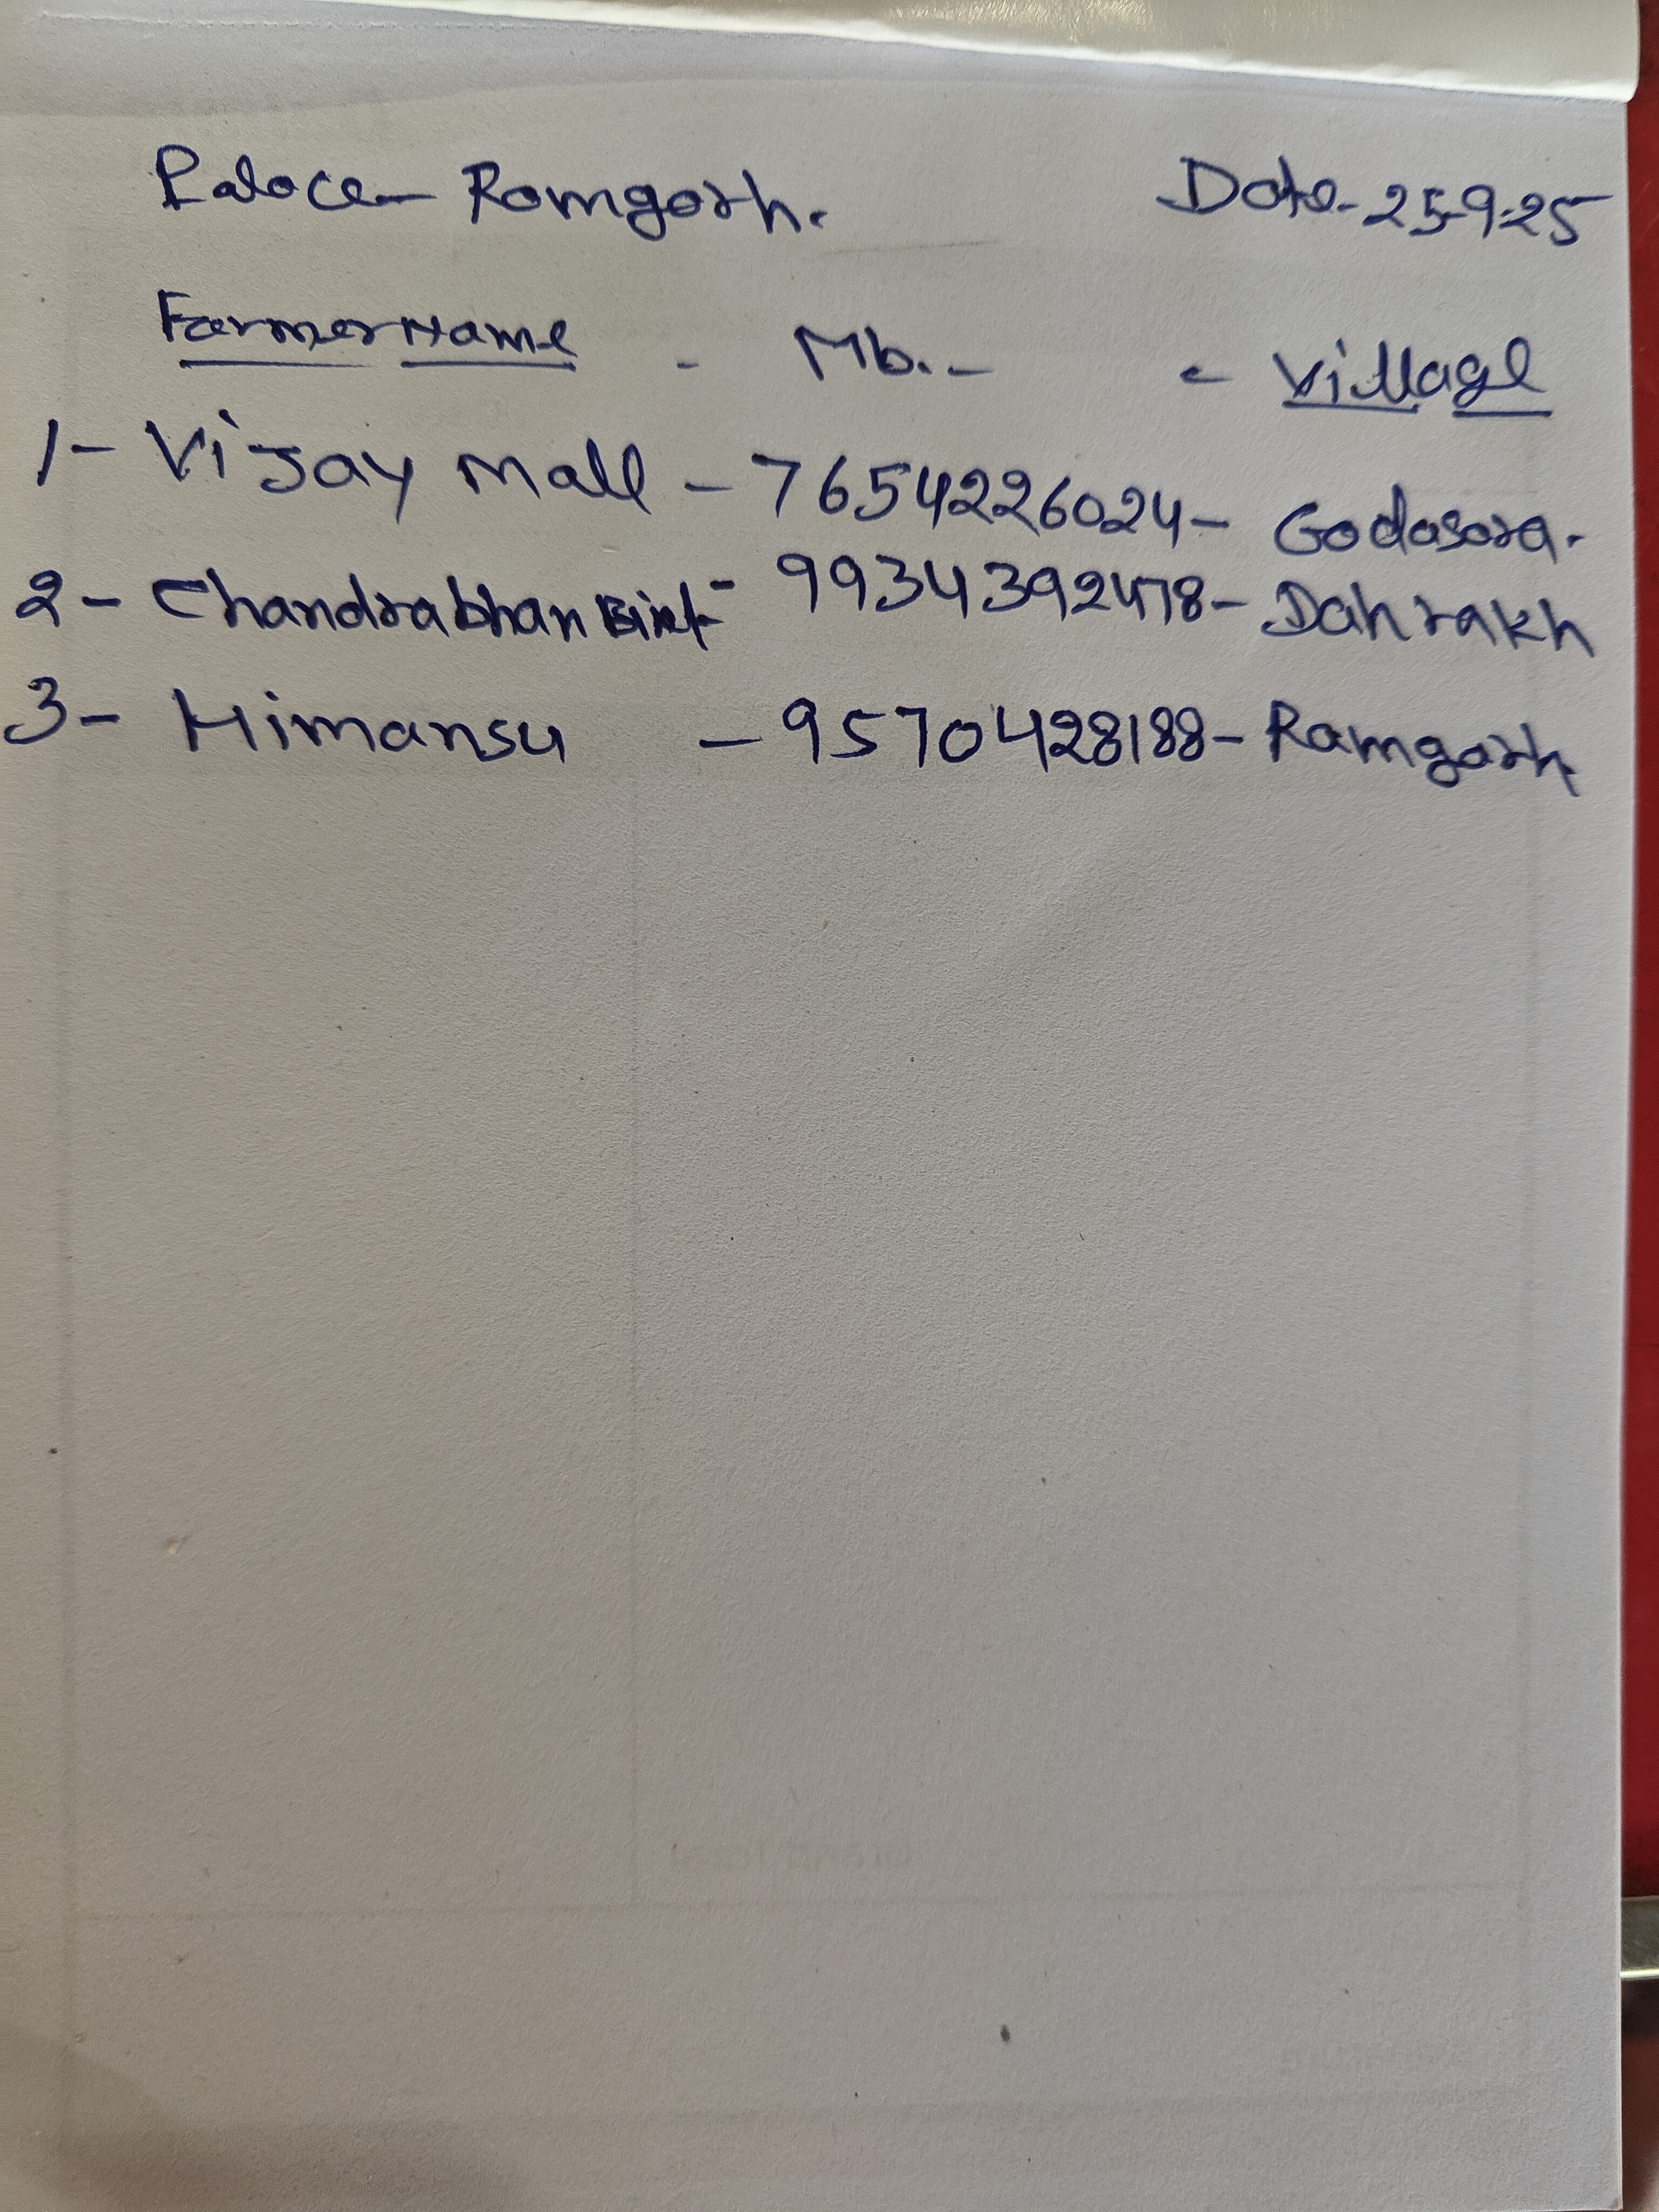 Palace- Ramgarh. Date-25-9-25
Farmer Name - Mb.- - Village
1- Vijay Mall - 7654226024- Godasara.
2- Chandrabhan Bind- 9934392478- Dahrakh
3- Himansu - 9570428188- Ramgarh